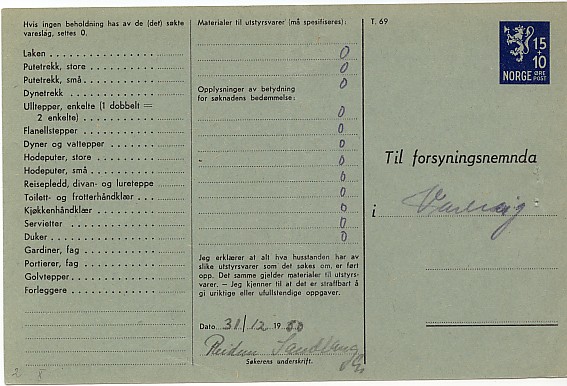 Hvis ingen beholdning has av de (det) søkte
vareslag, settes 0.
Laken
Putetrekk, store
Putetrekk, små
Dynetrekk
Ulltepper, enkelte (1 dobbelt =
2 enkelte)
Flanellstepper
Dyner og vattepper
Hodeputer, store
Hodeputer, små
Reisepledd, divan- og lureteppe
Toilett- og frotterhåndklær
Kjøkkenhåndklær
Servietter
Duker
Gardiner, fag
Portierer, fag
Golvtepper
Forleggere
Materialer til utstyrsvarer (må spesifiseres):
0
0
0
Opplysninger av betydning
for søknadens bedømmelse:
0
0
0
0
0
0
0
0
0
Jeg erklærer at alt hva husstanden har av
slike utstyrsvarer som det søkes om, er ført
opp. Det samme gjelder materialer til utstyrs-
varer. – Jeg kjenner til at det er straffbart å
gi uriktige eller ufullstendige oppgaver.
Dato 31/12 1950
Sandberg
Søkerens underskrift.
T. 69
15
+
10
NORGE ØRE
POST
Til forsyningsnemnda
i